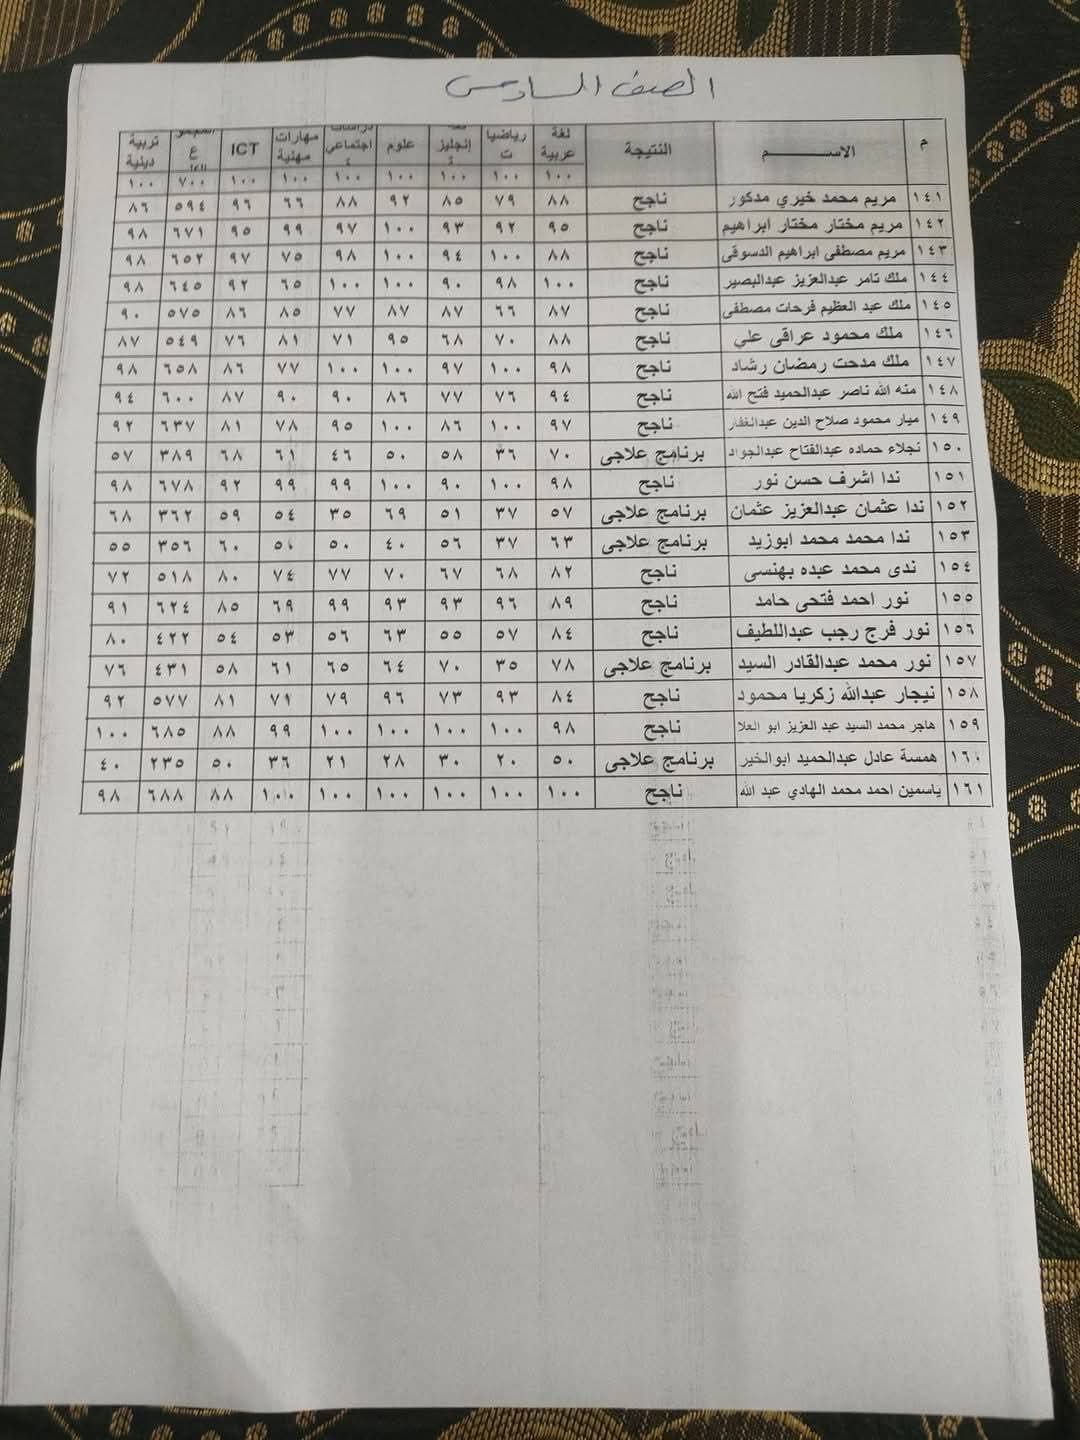 الصف السادس
م الاســـــــم النتيجة لغة عربية رياضيا ت إنجليز ة علوم اجتماعي مهارات مهنية ICT ع تربية دينية
١٠٠ ١٠٠ ١٠٠ ١٠٠ ١٠٠ ١٠٠ ١٠٠ ٧٠٠ ١٠٠
١٤١ مريم محمد خيري مدكور ناجح ٨٨ ٧٩ ٨٥ ٩٢ ٨٨ ٦٦ ٩٦ ٥٩٤ ٨٦
١٤٢ مريم مختار مختار ابراهيم ناجح ٩٥ ٩٢ ٩٣ ١٠٠ ٩٧ ٩٩ ٩٥ ٦٧١ ٩٨
١٤٣ مريم مصطفى ابراهيم الدسوقى ناجح ٨٨ ١٠٠ ٩٤ ١٠٠ ٩٨ ٧٥ ٩٧ ٦٥٢ ٩٨
١٤٤ ملك تامر عبدالعزيز عبدالبصير ناجح ١٠٠ ٩٨ ٩٠ ١٠٠ ١٠٠ ٦٥ ٩٢ ٦٤٥ ٩٨
١٤٥ ملك عبد العظيم فرحات مصطفى ناجح ٨٧ ٦٦ ٨٧ ٨٧ ٧٧ ٨٥ ٨٦ ٥٧٥ ٩٠
١٤٦ ملك محمود عراقى علي ناجح ٨٨ ٧٠ ٦٨ ٩٥ ٧١ ٨١ ٧٦ ٥٤٩ ٨٧
١٤٧ ملك مدحت رمضان رشاد ناجح ٩٨ ١٠٠ ٩٧ ١٠٠ ١٠٠ ٧٧ ٨٦ ٦٥٨ ٩٨
١٤٨ منه الله ناصر عبدالحميد فتح الله ناجح ٩٤ ٧٦ ٧٧ ٨٦ ٩٠ ٩٠ ٨٧ ٦٠٠ ٩٤
١٤٩ ميار محمود صلاح الدين عبدالغفار ناجح ٩٧ ١٠٠ ٨٦ ١٠٠ ٩٥ ٧٨ ٨١ ٦٣٧ ٩٢
١٥٠ نجلاء حماده عبدالفتاح عبدالجواد برنامج علاجى ٧٠ ٣٦ ٥٨ ٥٠ ٤٦ ٦١ ٦٨ ٣٨٩ ٥٧
١٥١ ندا اشرف حسن نور ناجح ٩٨ ١٠٠ ٩٠ ١٠٠ ٩٩ ٩٩ ٩٢ ٦٧٨ ٩٨
١٥٢ ندا عثمان عبدالعزيز عثمان برنامج علاجى ٥٧ ٣٧ ٥١ ٦٩ ٣٥ ٥٤ ٥٩ ٣٦٢ ٦٨
١٥٣ ندا محمد محمد ابوزيد برنامج علاجى ٦٣ ٣٧ ٥٦ ٤٠ ٥٠ ٥٠ ٦٠ ٣٥٦ ٥٥
١٥٤ ندى محمد عبده بهنسى ناجح ٨٢ ٦٨ ٦٧ ٧٠ ٧٧ ٧٤ ٨٠ ٥١٨ ٧٢
١٥٥ نور احمد فتحى حامد ناجح ٨٩ ٩٦ ٩٣ ٩٣ ٩٩ ٦٩ ٨٥ ٦٢٤ ٩١
١٥٦ نور فرج رجب عبداللطيف ناجح ٨٤ ٥٧ ٥٥ ٦٣ ٥٦ ٥٣ ٥٤ ٤٢٢ ٨٠
١٥٧ نور محمد عبدالقادر السيد برنامج علاجى ٧٨ ٣٥ ٧٠ ٦٤ ٦٥ ٦١ ٥٨ ٤٣١ ٧٦
١٥٨ نيجار عبدالله زكريا محمود ناجح ٨٤ ٩٣ ٧٣ ٩٦ ٧٩ ٧١ ٨١ ٥٧٧ ٩٢
١٥٩ هاجر محمد السيد عبد العزيز ابو العلا ناجح ٩٨ ١٠٠ ١٠٠ ١٠٠ ١٠٠ ٩٩ ٨٨ ٦٨٥ ١٠٠
١٦٠ همسة عادل عبدالحميد ابوالخير برنامج علاجى ٥٠ ٢٠ ٣٠ ٢٨ ٢١ ٣٦ ٥٠ ٢٣٥ ٤٠
١٦١ ياسمين احمد محمد الهادي عبد الله ناجح ١٠٠ ١٠٠ ١٠٠ ١٠٠ ١٠٠ ١٠٠ ٨٨ ٦٨٨ ٩٨